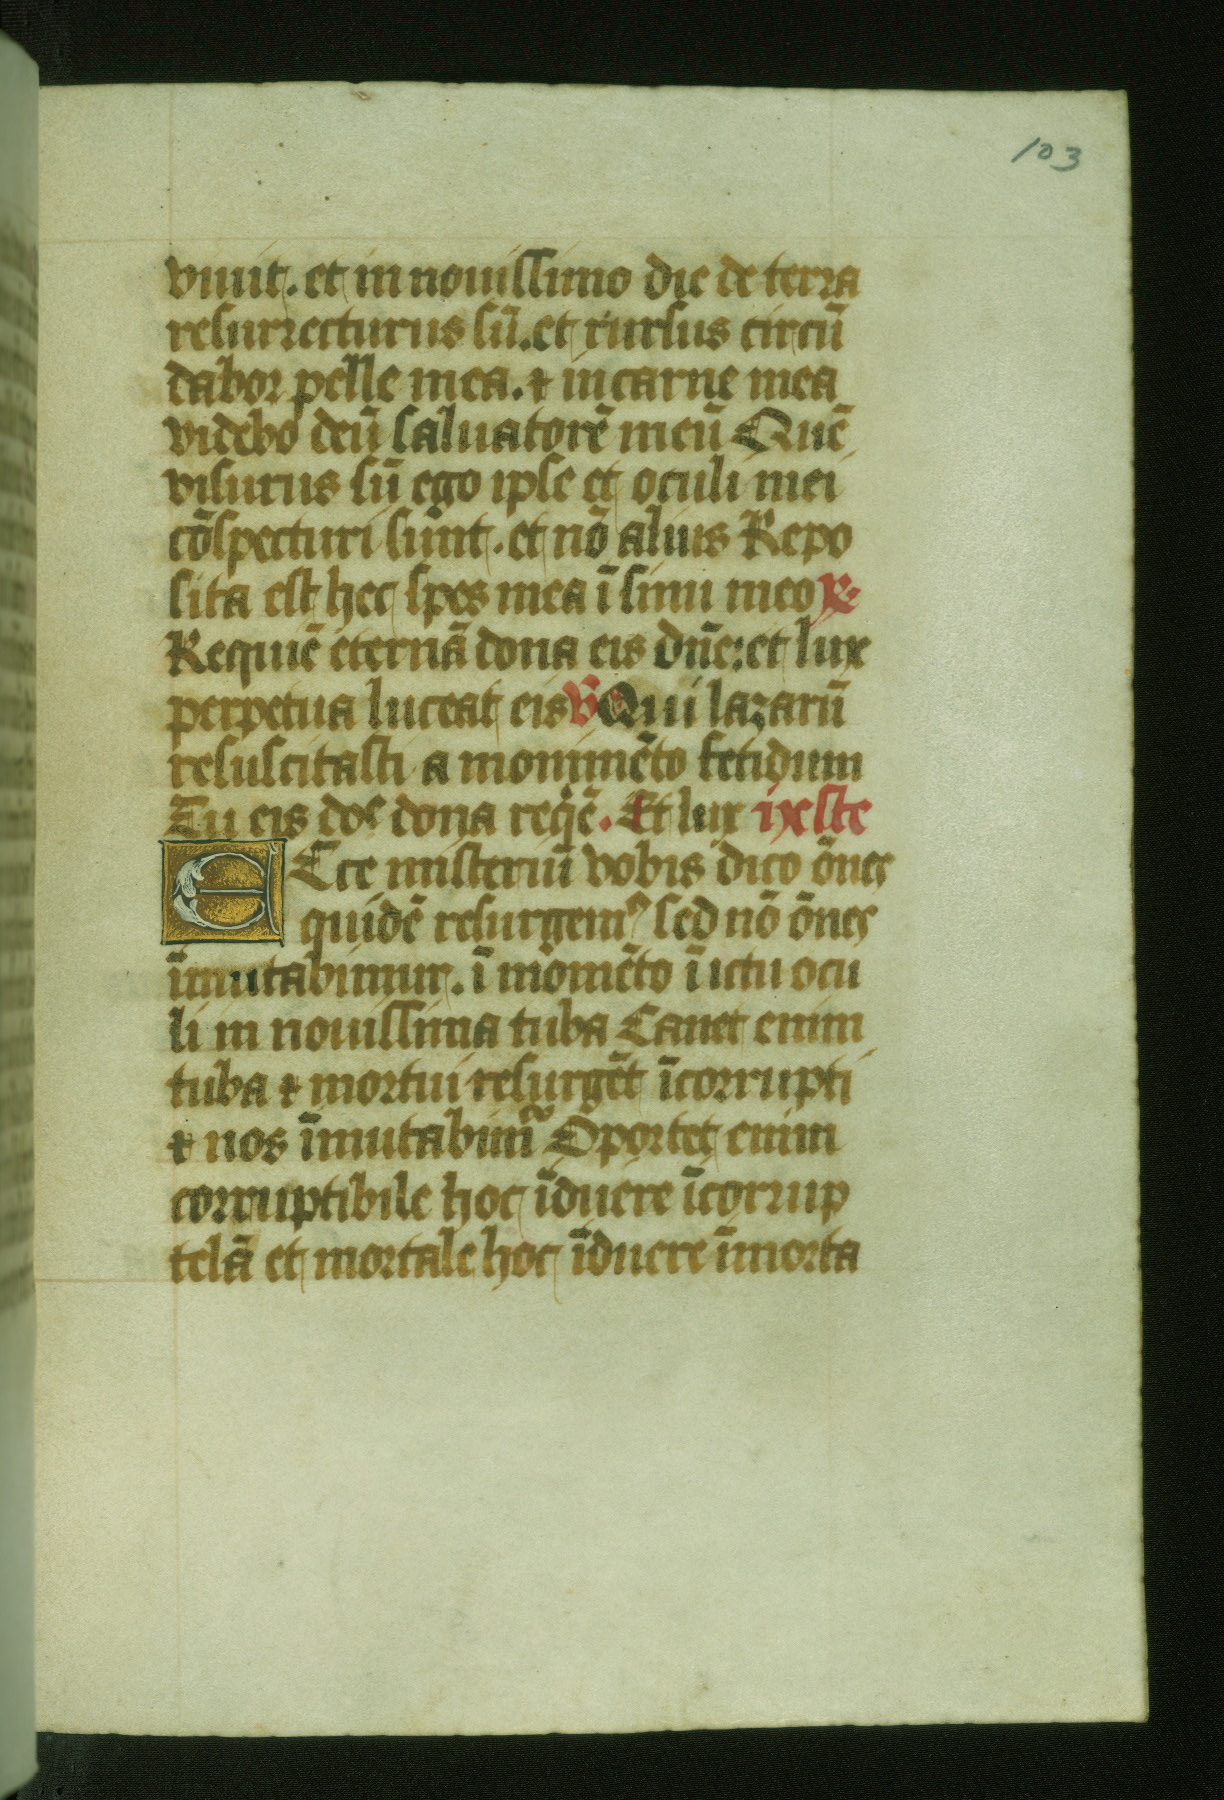 103
viuit. et in nouissimo die de terra
resurrecturus sū. et rursus circū
dabor pelle mea. ⁊ in carne mea
videbo deū saluatorē meū Quē
visurus sū ego ipse et oculi mei
cōspecturi sunt. et nō alius Repo
sita est hec spes mea ī sinu meo ℟.
Requiē eternā dona eis dn̄e: et lux
perpetua luceat eis ℣ Qui lazarū
resuscitasti a monimēto fetidum
Tu eis doe dona reqͥē. Et lux ix leste
Ecce misteriū vobis dico ōnes
quidē resurgemꝰ sed nō ōnes
īmutabimur. ī momēto ī ictu ocu
li in nouissima tuba Canet enim
tuba ⁊ mortui resurgēt īcorrupti
⁊ nos īmutabimᷣ Oportet enim
corruptibile hoc īduere īcorrup
telā et mortale hoc īduere īmorta